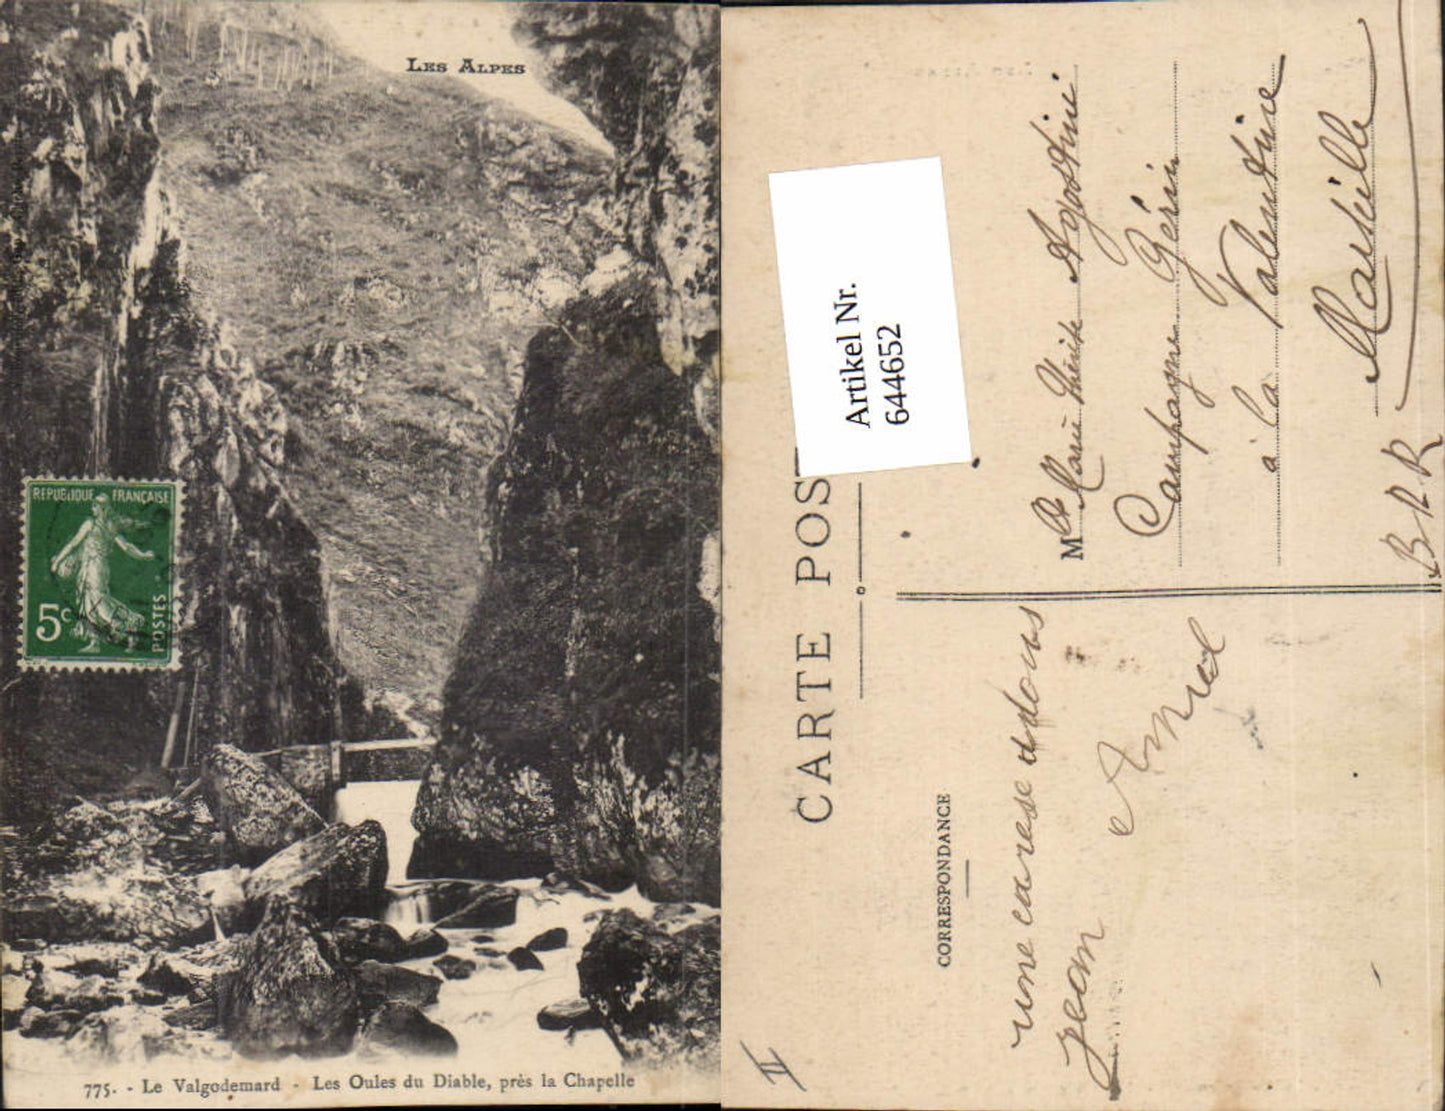 LES ALPES
REPUBLIQUE FRANÇAISE
5c
POSTES
775. - Le Valgodemard - Les Oules du Diable, près la Chapelle
Artikel Nr.
644652
CARTE POS
CORRESPONDANCE
une caresse à tous
Jean
M Marie Thérèse Agostini
Campagne Gérin
à la Valentine
Marseille
B D R
II